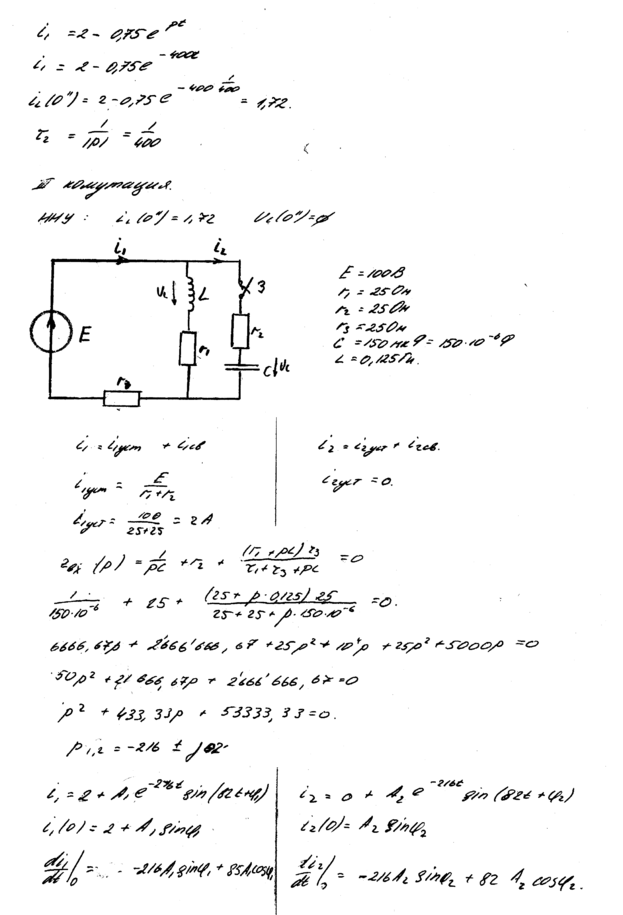 i₁ = 2 - 0,75 e^pt
i₁ = 2 - 0,75 e^-400t
i₂(0") = 2 - 0,75 e^-400 1/400 = 1,72.
τ₂ = 1/|p| = 1/400
III комутация.
ННУ : i₂(0") = 1,72 U_c(0") = 0
i₁ i₂
U_L L 3
E r₁ r₂
C U_c
r₃
E = 100 В
r₁ = 25 Ом
r₂ = 25 Ом
r₃ = 25 Ом
C = 150 мкФ = 150·10^-6 Ф
L = 0,125 Гн.
i₁ = i₁уст + i₁св
i₁уст = E/(r₁+r₂)
i₁уст = 100/(25+25) = 2 A
i₂ = i₂уст + i₂св.
i₂уст = 0.
Z_вх(p) = 1/pC + r₂ + (r₁ + pL) r₃/(r₁ + r₃ + pL) = 0
1/150·10^-6 + 25 + (25 + p·0,125) 25/(25 + 25 + p·150·10^-6) = 0.
6666,67p + 2'666'666,67 + 25p² + 10⁴p + 25p² + 5000p = 0
50p² + 21 666,67p + 2'666'666,67 = 0
p² + 433,33p + 53333,33 = 0.
p₁,₂ = -216 ± j82
i₁ = 2 + A₁ e^-216t sin(82t + φ₁)
i₁(0) = 2 + A₁ sinφ₁
di₁/dt|₀ = -216A₁ sinφ₁ + 85A₁ cosφ₁
i₂ = 0 + A₂ e^-216t sin(82t + φ₂)
i₂(0) = A₂ sinφ₂
di₂/dt|₀ = -216A₂ sinφ₂ + 82 A₂ cosφ₂.